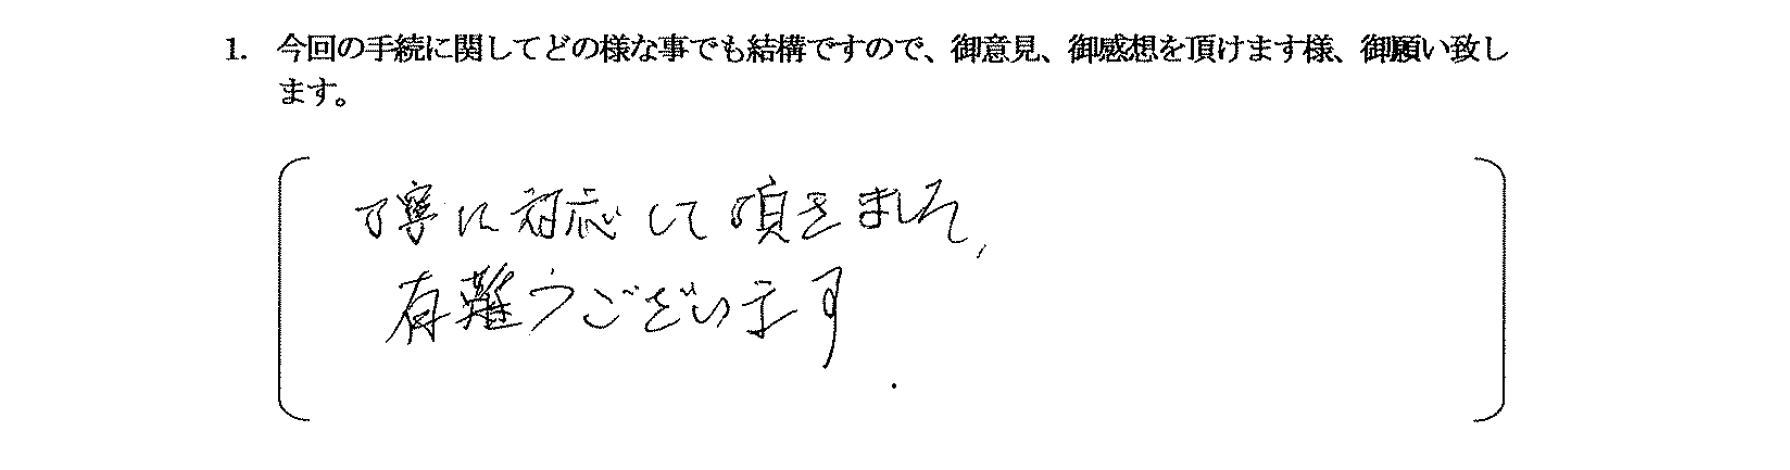 1. 今回の手続に関してどの様な事でも結構ですので、御意見、御感想を頂けます様、御願い致し
ます。
丁寧に対応して頂きました、
有難うございます.